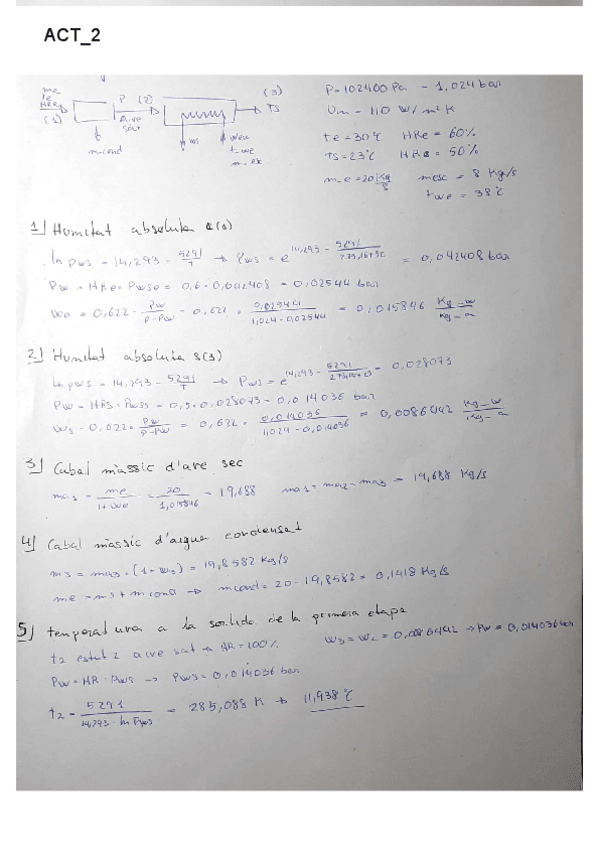 ACT_2
me
te
HRe
(1)
P (2)
Aire
sat
(3)
TS
mcond
m ex
P=102400 Pa - 1,024 bar
Um - 110 W/m²K
te = 30 ℃ HRe = 60%
TS = 23℃ HRs = 50%
me = 20 Kg/s mesc = 8 Kg/s
twe = 38℃
1) Humitat absoluta e(1)
ln pws = 14,293 - 5291/T → Pws = e^(14,293 - 5291/273,15+30) = 0,042408 bar
Pw = HRe · Pwse = 0,6 · 0,042408 = 0,02544 bar
We = 0,622 · Pw/P-Pw = 0,622 · 0,02544/1,024-0,02544 = 0,015846 Kg-w/Kg-a
2) Humitat absoluta s(3)
ln pws = 14,293 - 5291/T → Pws = e = 0,028073
Pw = HRs · Pwss = 0,5 · 0,028073 = 0,014036 bar
Ws = 0,622 · Pw/P-Pw = 0,622 · 0,014036/1,024-0,014036 = 0,0086442 Kg-w/Kg-a
3) Cabal màssic d'aire sec
ma1 = me/1+we = 20/1,015846 = 19,688 ma1 = ma2 = ma3 = 19,688 Kg/s
4) Cabal màssic d'aigua condensat
m3 = ma3 · (1+w3) = 19,8582 Kg/s
me = m3 + mcond → mcond = 20 - 19,8582 = 0,1418 Kg/s
5) temperatura a la sortida de la primera etapa
t2 estat 2 aire sat → HR = 100% W3 = W2 = 0,0086442 → Pw = 0,014036 bar
Pw = HR · Pws → Pws = 0,014036 bar
t2 = 5291/14,293 - ln Pws = 285,088 K → 11,938 ℃